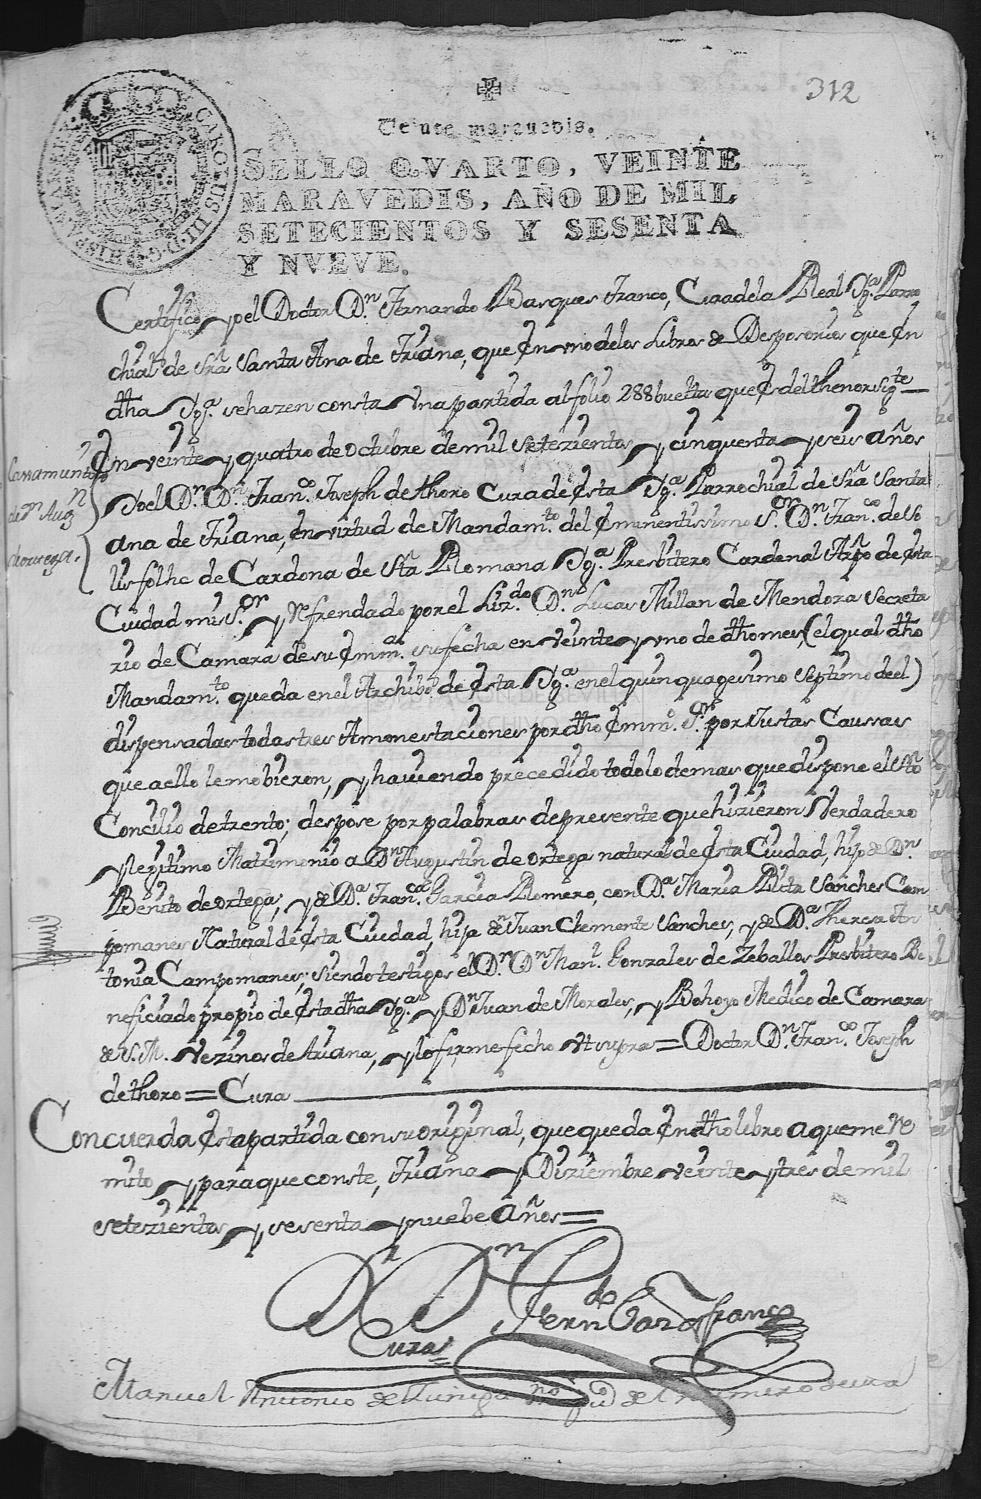 312
Veinte maravedis.
SELLO QVARTO, VEINTE
MARAVEDIS, AÑO DE MIL
SETECIENTOS Y SESENTA
Y NVEVE.
CAROLUS III D.G. HISPANIAR. REX
Certifico yo el Doctor Dn. Fernando Basques Franco, Cura de la Real Yga. Parro
chial de Sra. Santa Ana de Triana, que en uno de los Libros de Desposorios que en
dha Yga. se hazen consta una partida al folio 288 buelta que es del thenor sigte
En veinte y quatro de octubre de mil setezientos y cinquenta y seis años
Yo el Dr. Dn. Franco. Joseph de thoro Cura de esta Yga. Parrochial de Sra. Santa
ana de Triana, en virtud de Mandamto. del Eminentissimo Sr. Dn. Franco. de So
lis folhc de Cardona de Sta. Romana Yga. Presbitero Cardenal Arpo. de esta
Ciudad mi Sr. y Refrendado por el Lizdo. Dn. Lucas Millan de Mendoza Secreta
rio de Camara de su Emma. su fecha en veinte y uno de dho mes, (el qual dho
Mandamto. queda en el Archibo de esta Yga. en el quinquagesimo septimo de el)
dispensadas todas tres Amonestaciones por dho Emmo. Sr. por Justas Caussas
que a ello le mobieron, y haviendo precedido todo lo demas que dispone el Sto.
Concilio de trento; despose por palabras de presente que hizieron Verdadero
y legitimo Matrimonio a Dn. Augustin de ortega natural de esta Ciudad, hijo de Dn.
Benito de ortega, y de Da. Franca. Garcia Romero, con Da. Maria Rita Sanches Cam
pomanes Natural de esta Ciudad, hija de Dn. Juan Clemente Sanches, y de Da. Theresa An
tonia Campomanes; siendo testigos el Dr. Dn. Manl. Gonzales de Zeballos Presbitero Be
neficiado propio de esta dha Yga. y Dn. Juan de Morales, y Bohoyo Medico de Camara
de S.M. vezinos de triana, y lo firme fecho ut supra = Doctor Dn. Franco. Joseph
de thoro = Cura
Concuerda esta partida con su original, que queda en dho libro a que me re
mito y para que conste, triana y Diziembre veinte y tres de mil
setezientos y sesenta y nuebe años =
Casamiento
de Dn. Augn
de ortega.
Dr. Dn. Ferndo. Basqs. franco
Cura
Manuel Antonio de Zuñiga